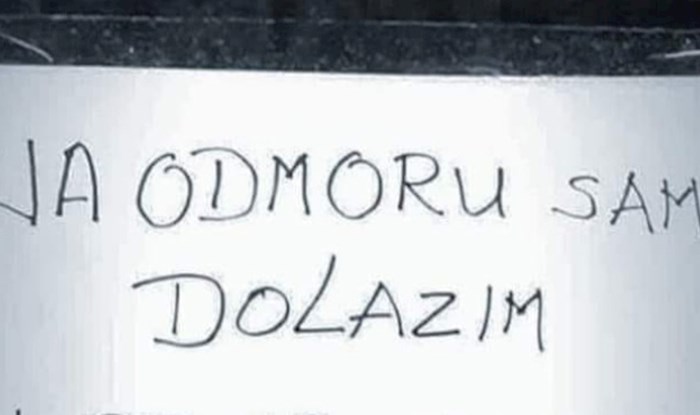 NA ODMORU SAM
DOLAZIM